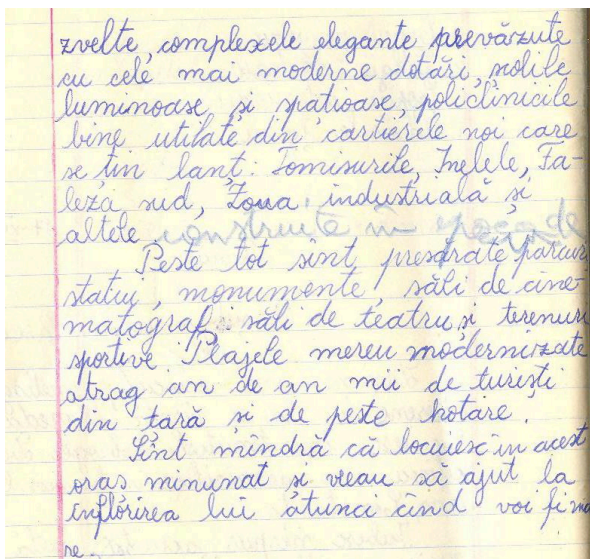 zvelte, complexele elegante prevărzute
cu cele mai moderne dotări, școlile
luminoase și spațioase, policlinicile
bine utilate din cartierele noi care
se țin lanț: Tomisurile, Inelele, Fa-
leza sud, Zona industrială și
altele construite în epoca de
Peste tot sînt presărate parcuri
statui, monumente, săli de cine-
matograf, săli de teatru și terenuri
sportive. Plajele mereu modernizate
atrag an de an mii de turiști
din țară și de peste hotare.
Sînt mîndră că locuiesc în acest
oraș minunat și vreau să ajut la
înflorirea lui atunci cînd voi fi ma
re.